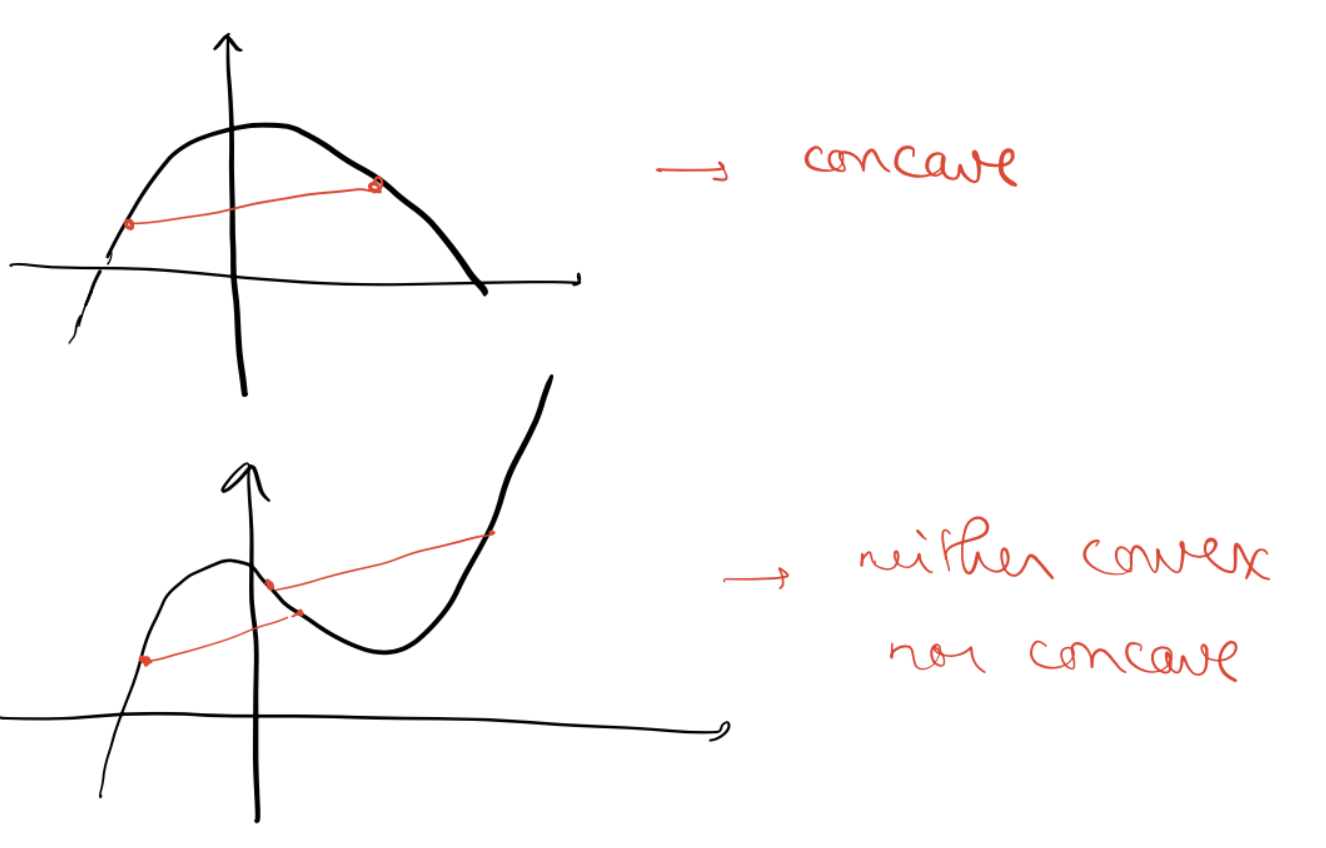 → concave
→ neither convex
nor concave